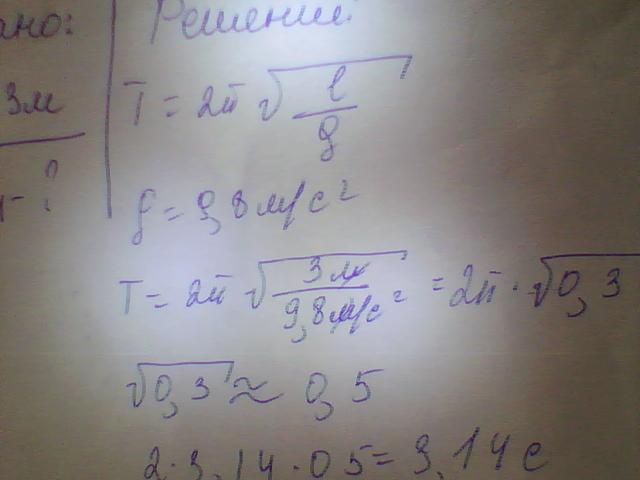 ано: Решение:
3м
T = 2π √(l/g)
T - ?
g = 9,8 м/с²
T = 2π √(3м/9,8м/с²) = 2π · √0,3
√0,3 ≈ 0,5
2·3,14·05=3,14 с